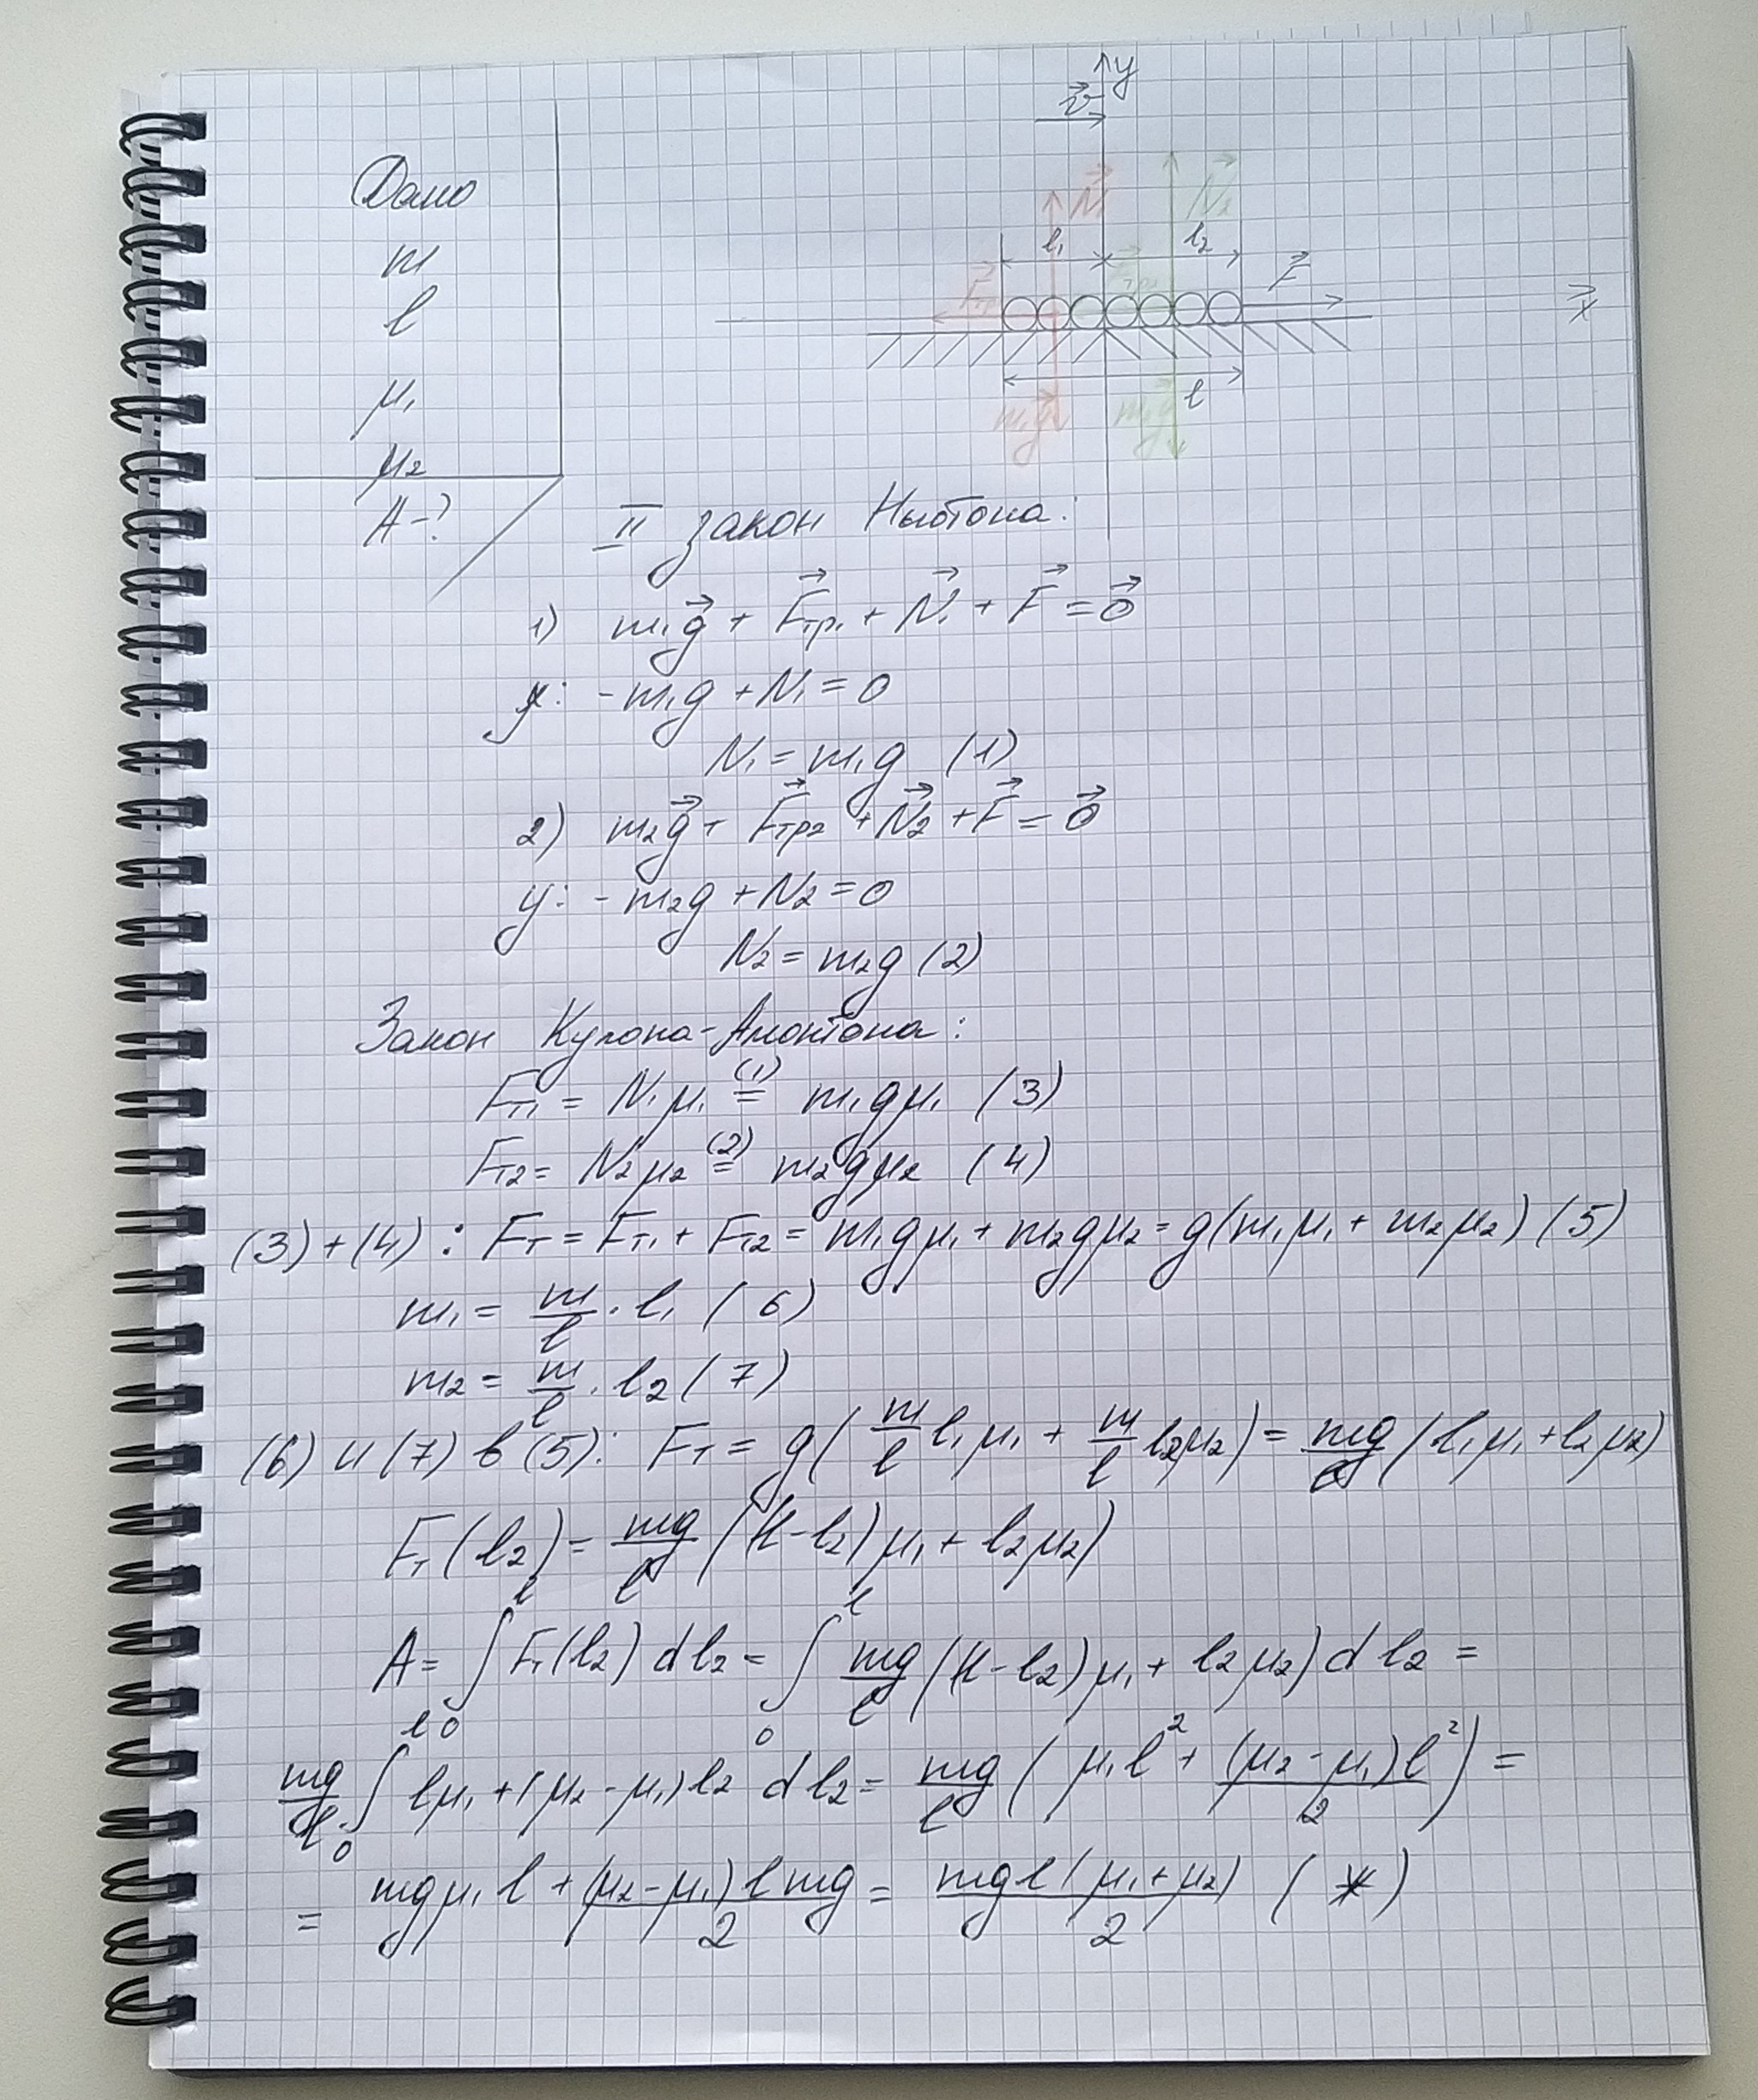 y
v⃗
N⃗₁
N⃗₂
l₁
l₂
F⃗тр₁
F⃗
x
l
m₁g⃗
Дано
m
l
μ₁
μ₂
A-?
II закон Ньютона:
1) m₁g⃗ + F⃗тр₁ + N⃗₁ + F⃗ = 0⃗
y: -m₁g + N₁ = 0
N₁ = m₁g (1)
2) m₂g⃗ + F⃗тр₂ + N⃗₂ + F⃗ = 0⃗
y: -m₂g + N₂ = 0
N₂ = m₂g (2)
Закон Кулона-Амонтона:
Fт₁ = N₁μ₁ (1)= m₁gμ₁ (3)
Fт₂ = N₂μ₂ (2)= m₂gμ₂ (4)
(3)+(4): Fт = Fт₁ + Fт₂ = m₁gμ₁ + m₂gμ₂ = g(m₁μ₁ + m₂μ₂) (5)
m₁ = m/l · l₁ (6)
m₂ = m/l · l₂ (7)
(6) и (7) в (5): Fт = g(m/l l₁μ₁ + m/l l₂μ₂) = mg/l (l₁μ₁ + l₂μ₂)
Fт(l₂) = mg/l ((l-l₂)μ₁ + l₂μ₂)
A = ∫₀ˡ Fт(l₂) dl₂ = ∫₀ˡ mg/l ((l-l₂)μ₁ + l₂μ₂) dl₂ =
mg/l ∫₀ˡ lμ₁ + (μ₂-μ₁)l₂ dl₂ = mg/l (μ₁l² + (μ₂-μ₁)l²/2) =
= mgμ₁l + (μ₂-μ₁)lmg/2 = mgl(μ₁+μ₂)/2 (*)